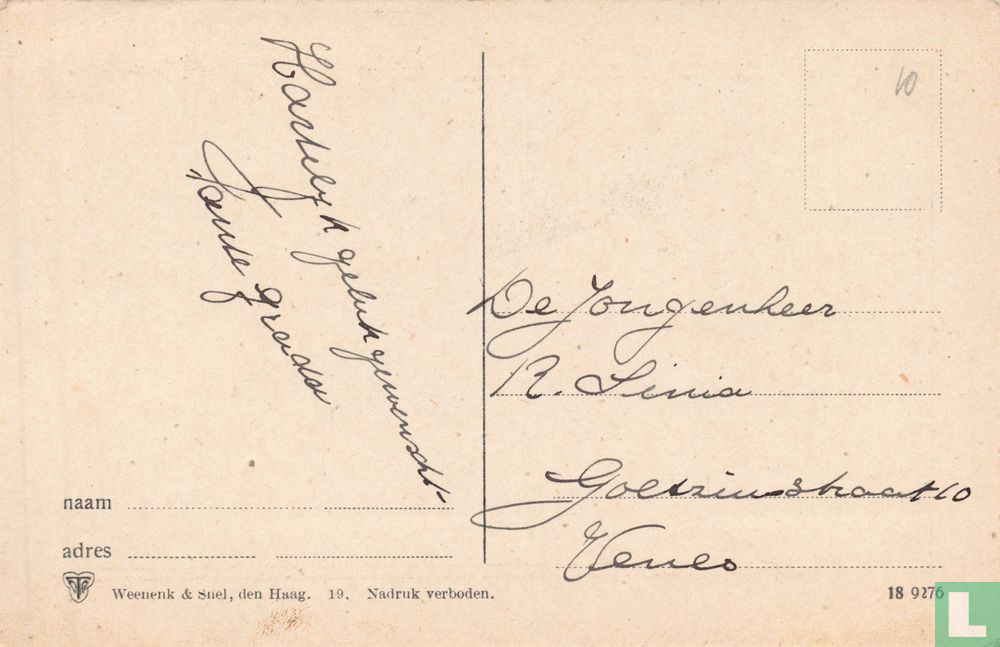 Hartelijk gelukgewenscht
Tante Grada
10
De Jongenheer
R. Sinia
Goltziusstraat 10
Venlo
naam
adres
Weenenk & Snel, den Haag. 19. Nadruk verboden.
18 9276
L